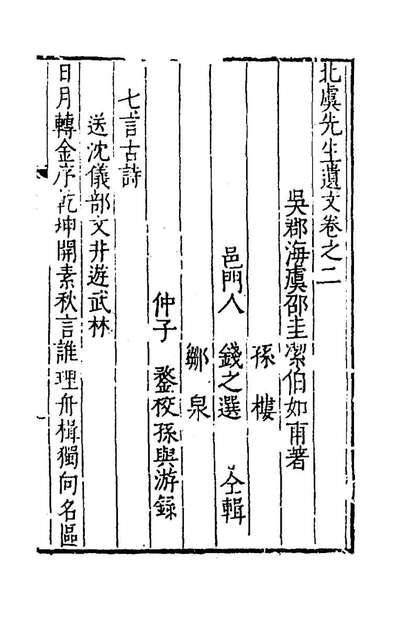 北虞先生遺文卷之二
吳郡海虞邵圭潔伯如甫著
孫樓
邑門人 錢之選 仝輯
鄒泉
仲子 鏊校孫與游錄
七言古詩
送沈儀部文井遊武林
日月轉金序乾坤開素秋言誰理舟楫獨向名區